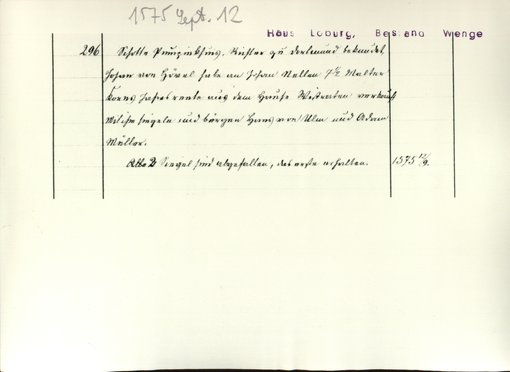 1575 Sept. 12
Haus Loburg, Bestand Wenge
296 Richter zu Dortmund bekundet
Johan von Hövel habe an Johan Mallen 7½ Malter
Korns Jahresrente aus dem Hause verkauft
Mit ihm siegeln und bürgen Hans von Ulm und Adam
Müller.
Alle 2 Siegel sind abgefallen, das erste erhalten. 1575 12/9.